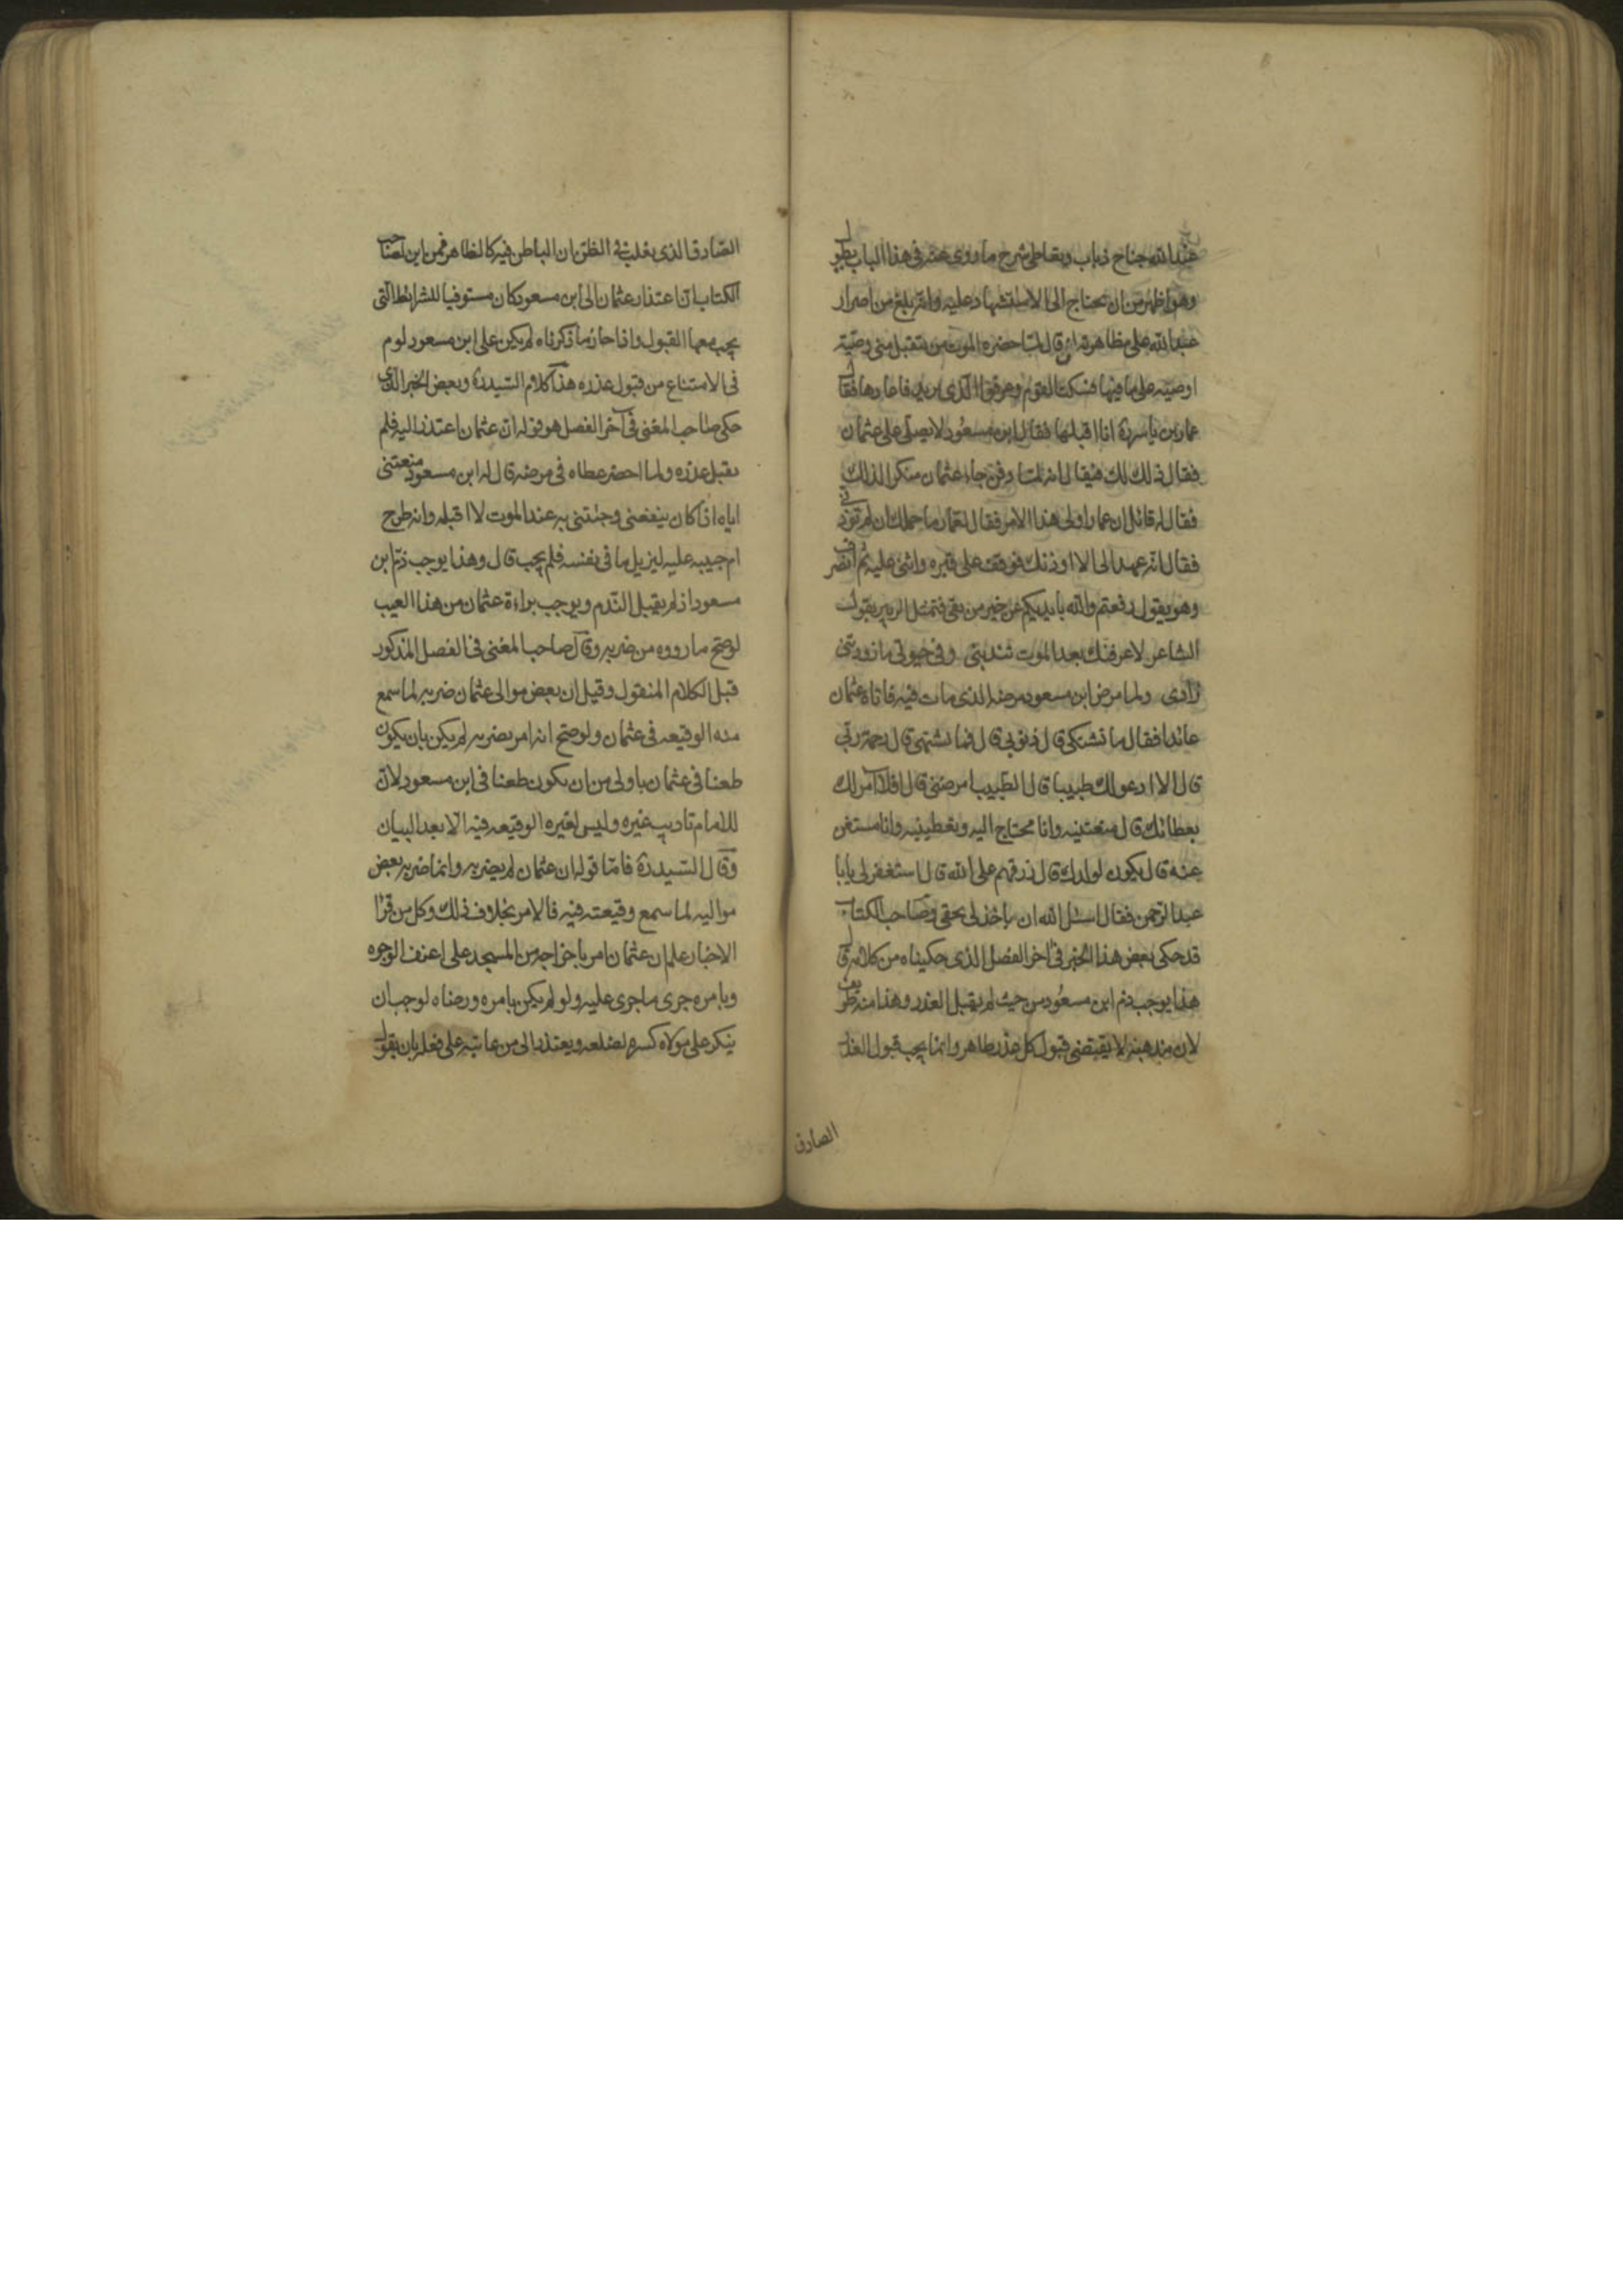 عند الله جناح ذباب وتعاطى شرح ما روى عنه فى هذا الباب يطول
وهو اظهر من ان يحتاج الى الاستشهاد عليه وانه بلغ من اصرار
عبد الله على مظاهرته ان قال لما حضره الموت من يتقبل منى وصية
اوصيه على ما فيها فسكت القوم وعرفوا الذى يريد فاعادها فقال
عمار بن ياسر ره انا اقبلها فقال ابن مسعود لا يصلى على عثمان
فقال ذلك لك فيقال انه لما دفن جاء عثمان منكرا لذلك
فقال له قائل ان عمارا ولى هذا الامر فقال لعمار ما حملك ان لم توذنى
فقال انه عهد الى الا اوذنك فوقف على قبره واثنى عليه ثم انصرف
وهو يقول رفعتم والله بايديكم عن خير من بقى فتمثل الزبير بقول
الشاعر لاعرفنك بعد الموت تندبنى وفى حيوتى ما زودتنى
زادى ولما مرض ابن مسعود مرضه الذى مات فيه فاتاه عثمان
عائدا فقال ما تشتكى قال ذنوبى قال فما تشتهى قال رحمة ربى
قال الا ادعو لك طبيبا قال الطبيب امرضنى قال افلا آمر لك
بعطائك قال منعتنيه وانا محتاج اليه وتعطينيه وانا مستغن
عنه قال يكون لولدك قال رزقهم على الله قال استغفر لى يا ابا
عبد الرحمن فقال اسئل الله ان ياخذ لى بحقى وصاحب الكتاب
قد حكى بعض هذا الخبر فى اخر الفصل الذى حكيناه من كلامه قال
هذا يوجب ذم ابن مسعود من حيث لم يقبل العذر وهذا منه طريف
لان مذهبه لا يقتضى قبول كل عذر ظاهر وانما يجب قبول العذر
الصادق
الصادق الذى يغلب فى الظن ان الباطن فيه كالظاهر فمن اين لصاحب
الكتاب ان اعتذار عثمان الى ابن مسعود كان مستوفيا للشرائط التى
يجب معها القبول واذا جاز ما ذكرناه لم يكن على ابن مسعود لوم
فى الامتناع من قبول عذره هذا كلام السيد ره وبعض الخبر الذى
حكى صاحب المغنى فى آخر الفصل هو قوله ان عثمان اعتذر اليه فلم
يقبل عذره ولما احضر عطاه فى مرضه قال له ابن مسعود منعتنى
اياه اذ كان ينفعنى وجئتنى به عند الموت لا اقبله وانه طرح
ام حبيبه عليه ليزيل ما فى نفسه فلم يجب قال وهذا يوجب ذم ابن
مسعود اذ لم يقبل الندم ويوجب براءة عثمان من هذا العيب
لو صح ما رووه من ضربه وقال صاحب المغنى فى الفصل المذكور
قبل الكلام المنقول وقيل ان بعض موالى عثمان ضربه لما سمع
منه الوقيعه فى عثمان ولو صح انه امر بضربه لم يكن بان يكون
طعنا فى عثمان باولى من ان يكون طعنا فى ابن مسعود لان
للامام تاديب غيره وليس لغيره الوقيعه فيه الا بعد البيان
وقال السيد ره فاما قوله ان عثمان لم يضربه وانما ضربه بعض
مواليه لما سمع وقيعته فيه فالامر بخلاف ذلك وكل من قرا
الاخبار علم ان عثمان امر باخراجه من المسجد على اعنف الوجوه
وبامره جرى ما جرى عليه ولو لم يكن بامره ورضاه لوجب ان
ينكر على مولاه كسره لضلعه ويعتذر الى من عاتبه على فعله بان يقول